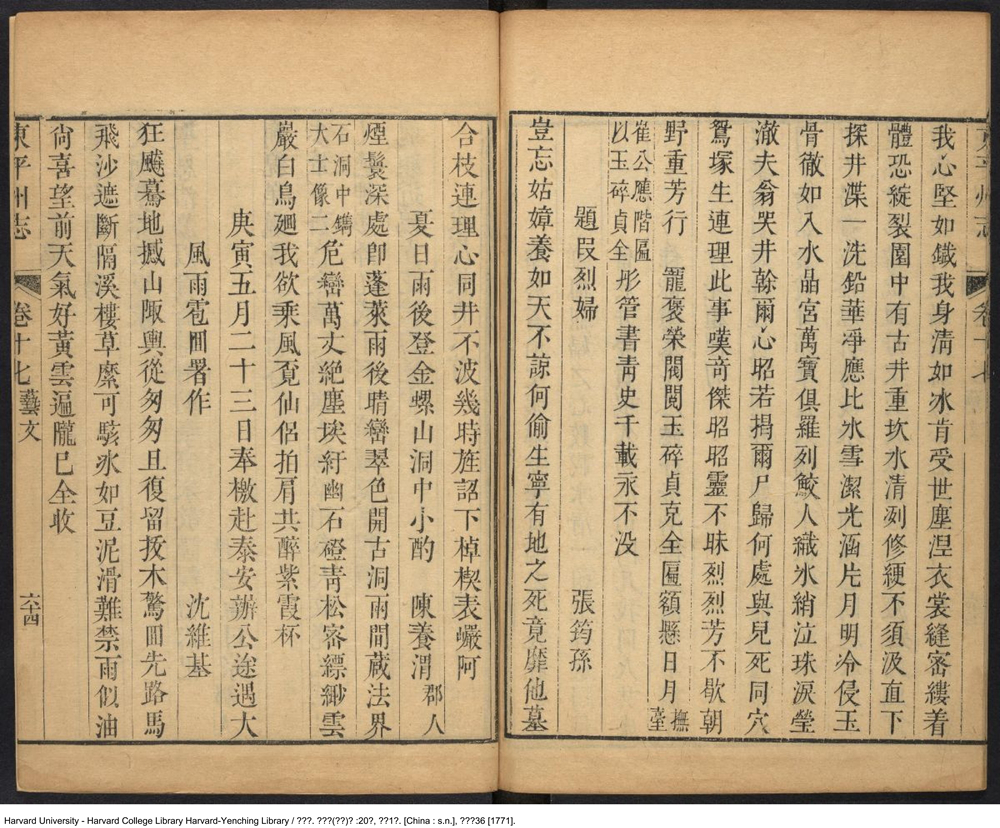 我心堅如鐵我身清如冰肯受世塵涅衣裳縫密縷着
體恐綻裂園中有古井重坎水清冽修綆不須汲直下
探井渫一洗鉛華凈應比冰雪潔光涵片月明冷侵玉
骨徹如入水晶宮萬寶俱羅列鮫人織氷綃泣珠淚瑩
澈夫翁哭井榦爾心昭若揭爾尸歸何處與兒死同穴
鴛塚生連理此事嘆奇傑昭昭靈不昧烈烈芳不歇朝
野重芳行 寵褒榮閥閱玉碎貞克全匾額懸日月撫臺
崔公應階匾以玉碎貞全彤管書靑史千載永不没
題段烈婦 張筠孫
豈忘姑嫜養如天不諒何偷生寧有地之死竟靡他墓
合枝連理心同井不波幾時旌詔下棹楔表巗阿
夏日雨後登金螺山洞中小酌 陳養渭 郡人
煙鬟深處卽蓬萊雨後晴巒翠色開古洞雨間蔵法界
石洞中鐫大士像二危巒萬丈絶塵埃紆幽石磴靑松密縹緲雲
巖白鳥廻我欲乘風覔仙侶拍肩共醉紫霞杯
庚寅五月二十三日奉檄赴泰安辦公途遇大
風雨雹囬署作 沈維基
狂飈驀地撼山陬輿從匆匆且復留拔木驚囬先路馬
飛沙遮斷隔溪樓草縻可駭氷如豆泥滑難禁雨似油
尙喜望前天氣好黃雲遍隴已全收
東平州志 卷十七 藝文 六十四
Harvard University - Harvard College Library Harvard-Yenching Library / ???. ???(??)? :20?, ??1?. [China : s.n.], ???36 [1771].